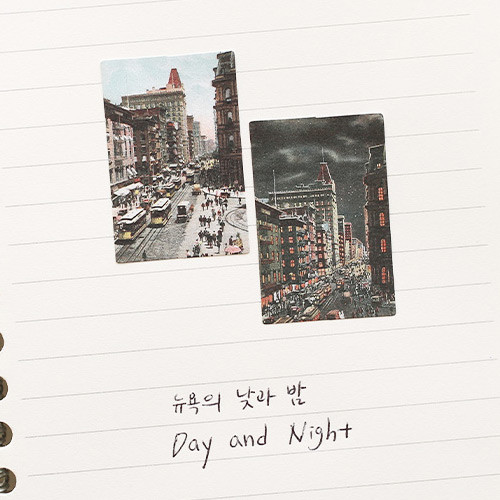 뉴욕의 낮과 밤
Day and Night